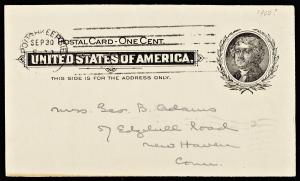 1900?
POUGHKEEPSIE
SEP 30
POSTAL CARD - ONE CENT.
UNITED STATES OF AMERICA.
THIS SIDE IS FOR THE ADDRESS ONLY.
Mrs. Geo. B. Adams
57 Edgehill Road
New Haven
Conn.